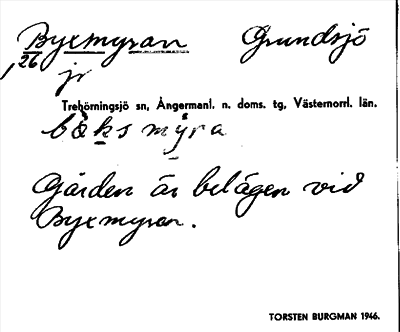 Byxmyran Grundsjö
1,26 jr
Trehörningsjö sn, Ångermanl. n. doms. tg, Västernorrl. län.
bøksmýra
Gården är belägen vid
Byxmyran.
TORSTEN BURGMAN 1946.